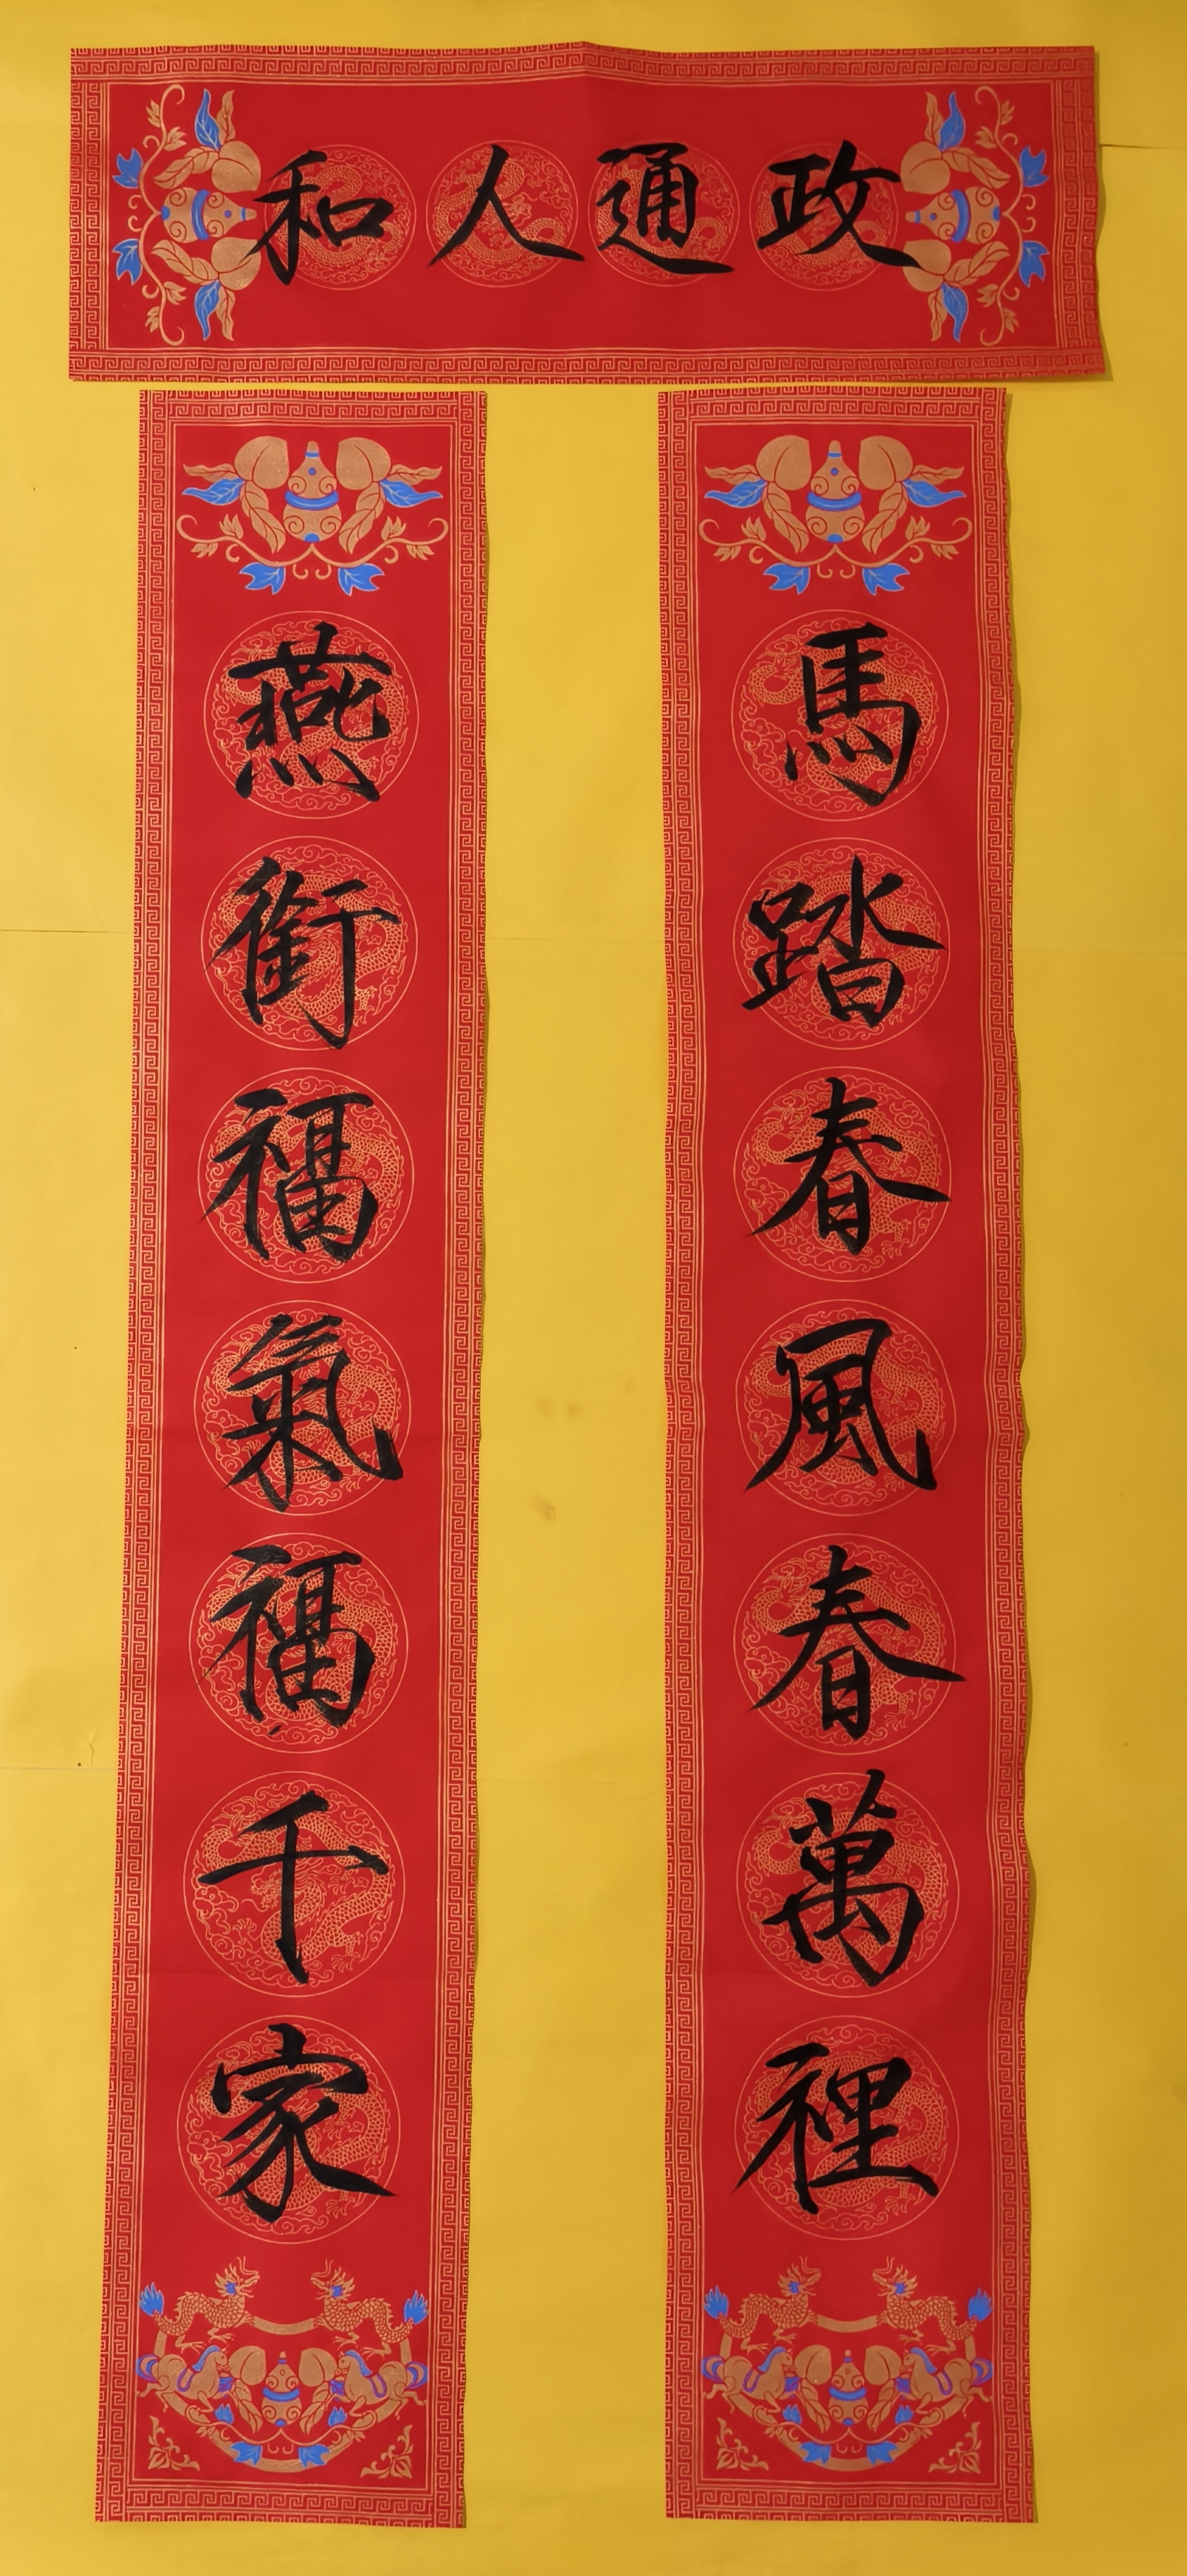 政通人和
馬踏春風春萬裡
燕銜福氣福千家